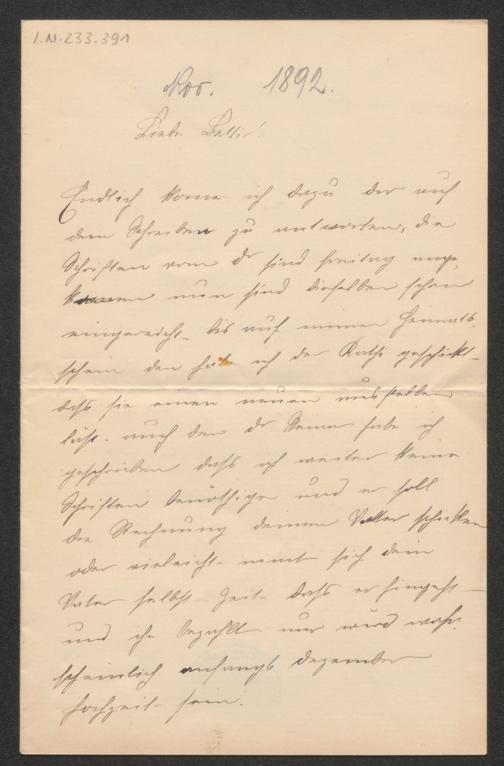 I.N. 233.391
Nov. 1892.
Liebe Betti!
Endlich kome ich dazu dir auf
dein Schreiben zu antworten, die
Schriften vom Dr sind freitag ange
kommen nun sind dieselben schon
eingereicht bis auf meinen Heimats
schein den habe ich der Kathi geschickt
daß sie einen neuen ausstellen
läßt. auch den Dr habe ich
geschrieben daß ich weiter keine
Schriften benöthige und er soll
die Rechnung deinen Vatter schicken
oder vieleicht nimt sich dein
Vater selbst Zeit daß er hingeht
und ihn bezahlt nur wird wahr
scheinlich anfangs Dezember
Hochzeit sein.